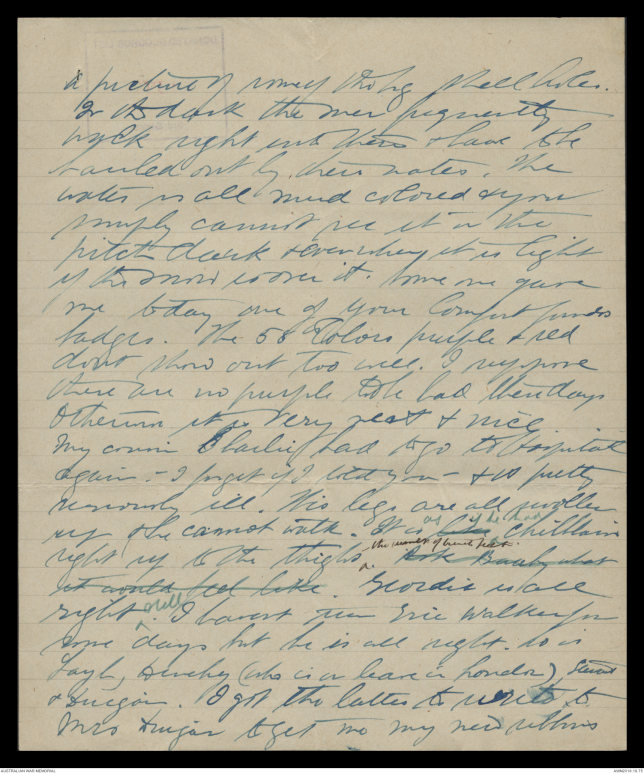 a picture of some of the big shell holes.
In the dark the men frequently
walk right into them & have to be
hauled out by their mates. The
water is all mud colored & you
simply cannot see it in the
pitch dark & even when it is light
if the snow is over it. Some one gave
me today one of your Comfort funds
badges. The 58th Colors purple & red
dont show out too well. I suppose
there are no purple to be had these days
Otherwise it is very neat & nice
My cousin Charlie had to go to Hospital
again - I forget if I told you - & is pretty
seriously ill. His legs are all swollen
up & he cannot walk. It is as if he had Chilblains
right up to the thighs
the name of trench feet.
it would feel like. Geordie is all
right still. I havent seen Eric Walker for
some days but he is all right. So is
(who is on leave in London), Stewart
& Duigan. I got the latter to write to
Mrs Duigan to get me my new ribbons
AUSTRALIAN WAR MEMORIAL